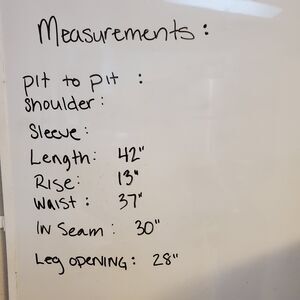 Measurements :
pit to pit :
Shoulder :
Sleeve :
Length : 42"
Rise : 13"
Waist : 37"
In Seam : 30"
Leg opening : 28"